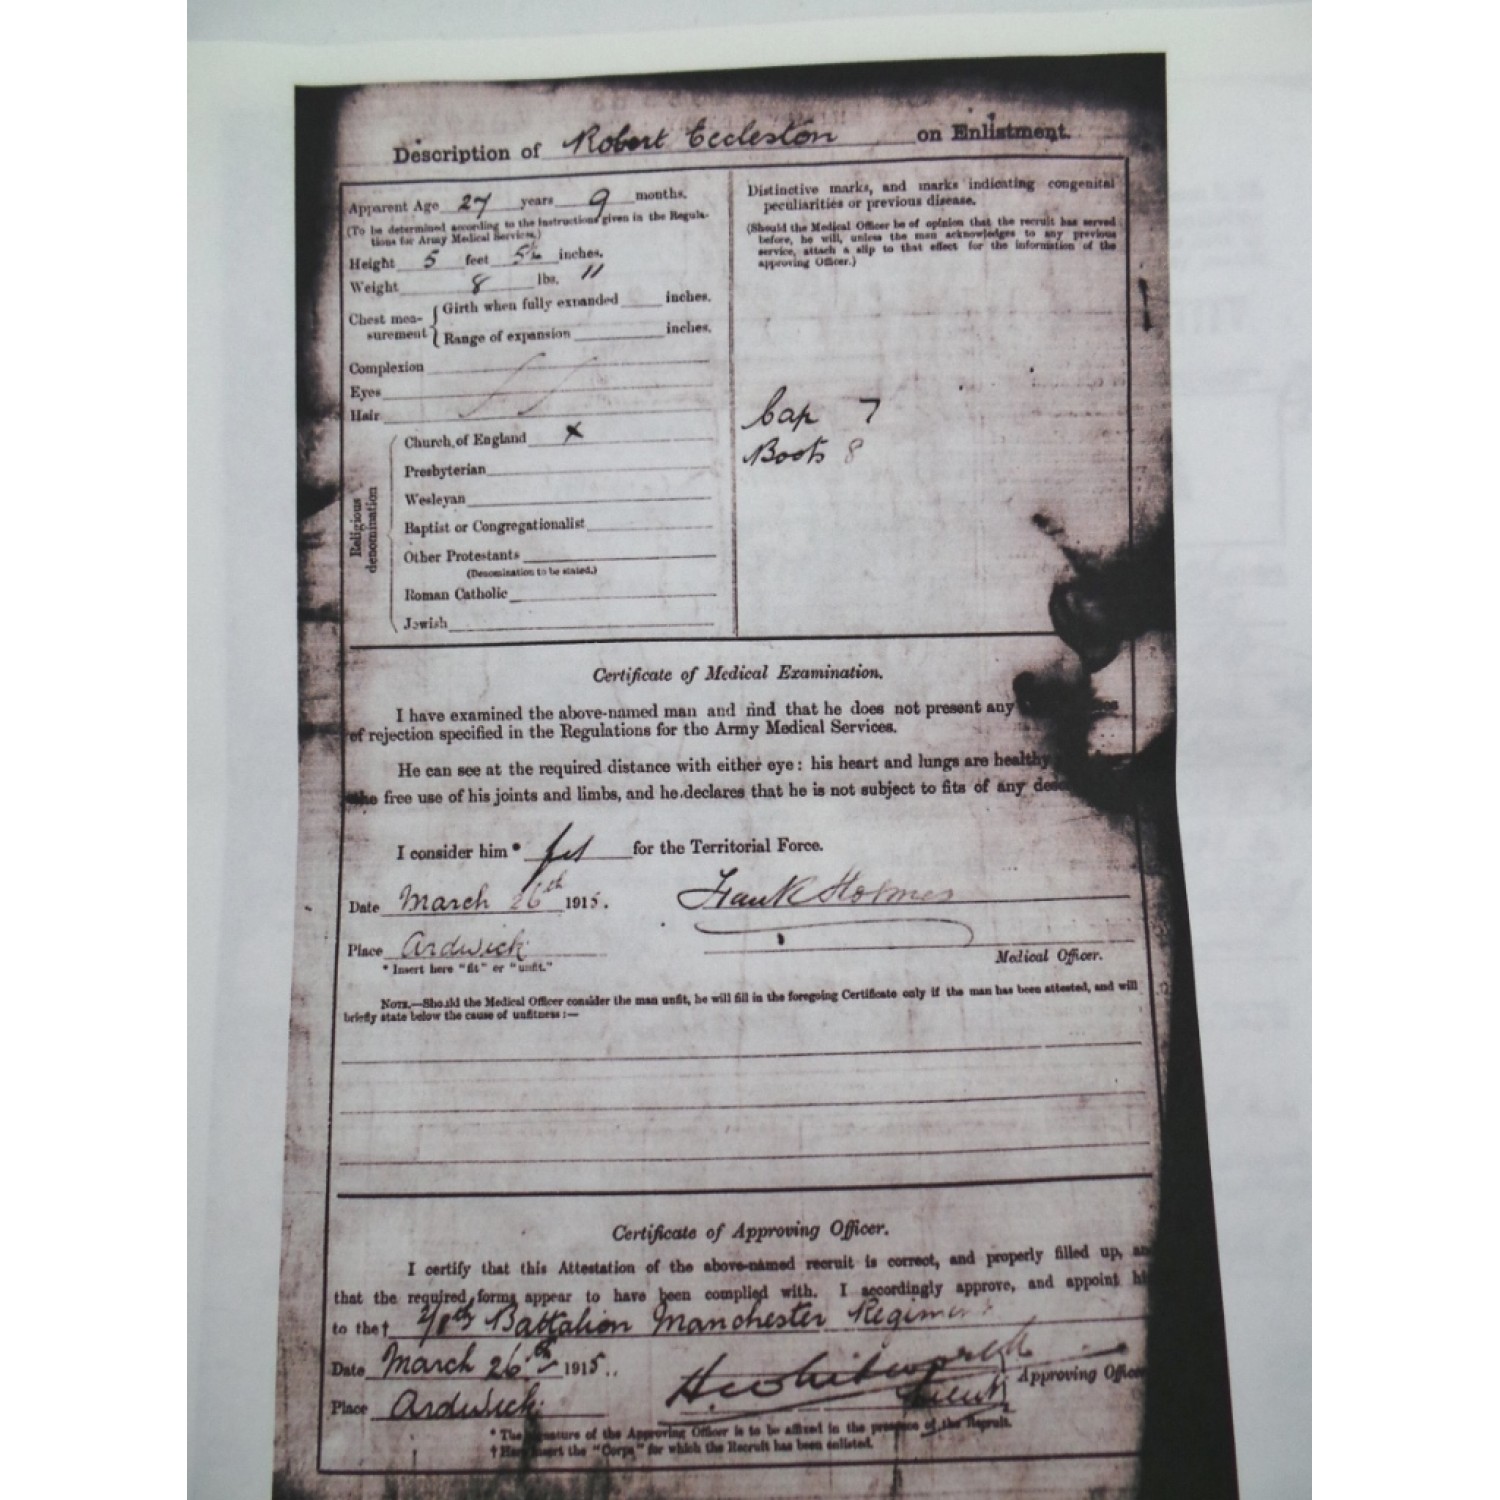 Description of Robert Eccleston on Enlistment.
Apparent Age 27 years 9 months.
(To be determined according to the instructions given in the Regula-
tions for Army Medical Services.)
Height 5 feet 5½ inches.
Weight 8 lbs. 11
Chest mea-
surement
Girth when fully expanded inches.
Range of expansion inches.
Complexion
Eyes
Hair
Religious
denomination
Church of England x
Presbyterian
Wesleyan
Baptist or Congregationalist
Other Protestants
(Denomination to be stated.)
Roman Catholic
Jewish
Distinctive marks, and marks indicating congenital
peculiarities or previous disease.
(Should the Medical Officer be of opinion that the recruit has served
before, he will, unless the man acknowledges to any previous
service, attach a slip to that effect for the information of the
approving Officer.)
Cap 7
Boots 8
Certificate of Medical Examination.
I have examined the above-named man and find that he does not present any
of rejection specified in the Regulations for the Army Medical Services.
He can see at the required distance with either eye: his heart and lungs are healthy
the free use of his joints and limbs, and he declares that he is not subject to fits of any
I consider him * fit for the Territorial Force.
Date March 26th 1915.
Frank Holmes
Place Ardwick
Medical Officer.
* Insert here "fit" or "unfit."
NOTE.—Should the Medical Officer consider the man unfit, he will fill in the foregoing Certificate only if the man has been attested, and will
briefly state below the cause of unfitness:—
Certificate of Approving Officer.
I certify that this Attestation of the above-named recruit is correct, and properly filled up,
that the required forms appear to have been complied with. I accordingly approve, and appoint
to the† Battalion Manchester Regiment
Date March 26th 1915..
H Whitworth Lieut Approving Officer
Place Ardwick
* The signature of the Approving Officer is to be affixed in the presence of the Recruit.
† Here insert the "Corps" for which the Recruit has been enlisted.